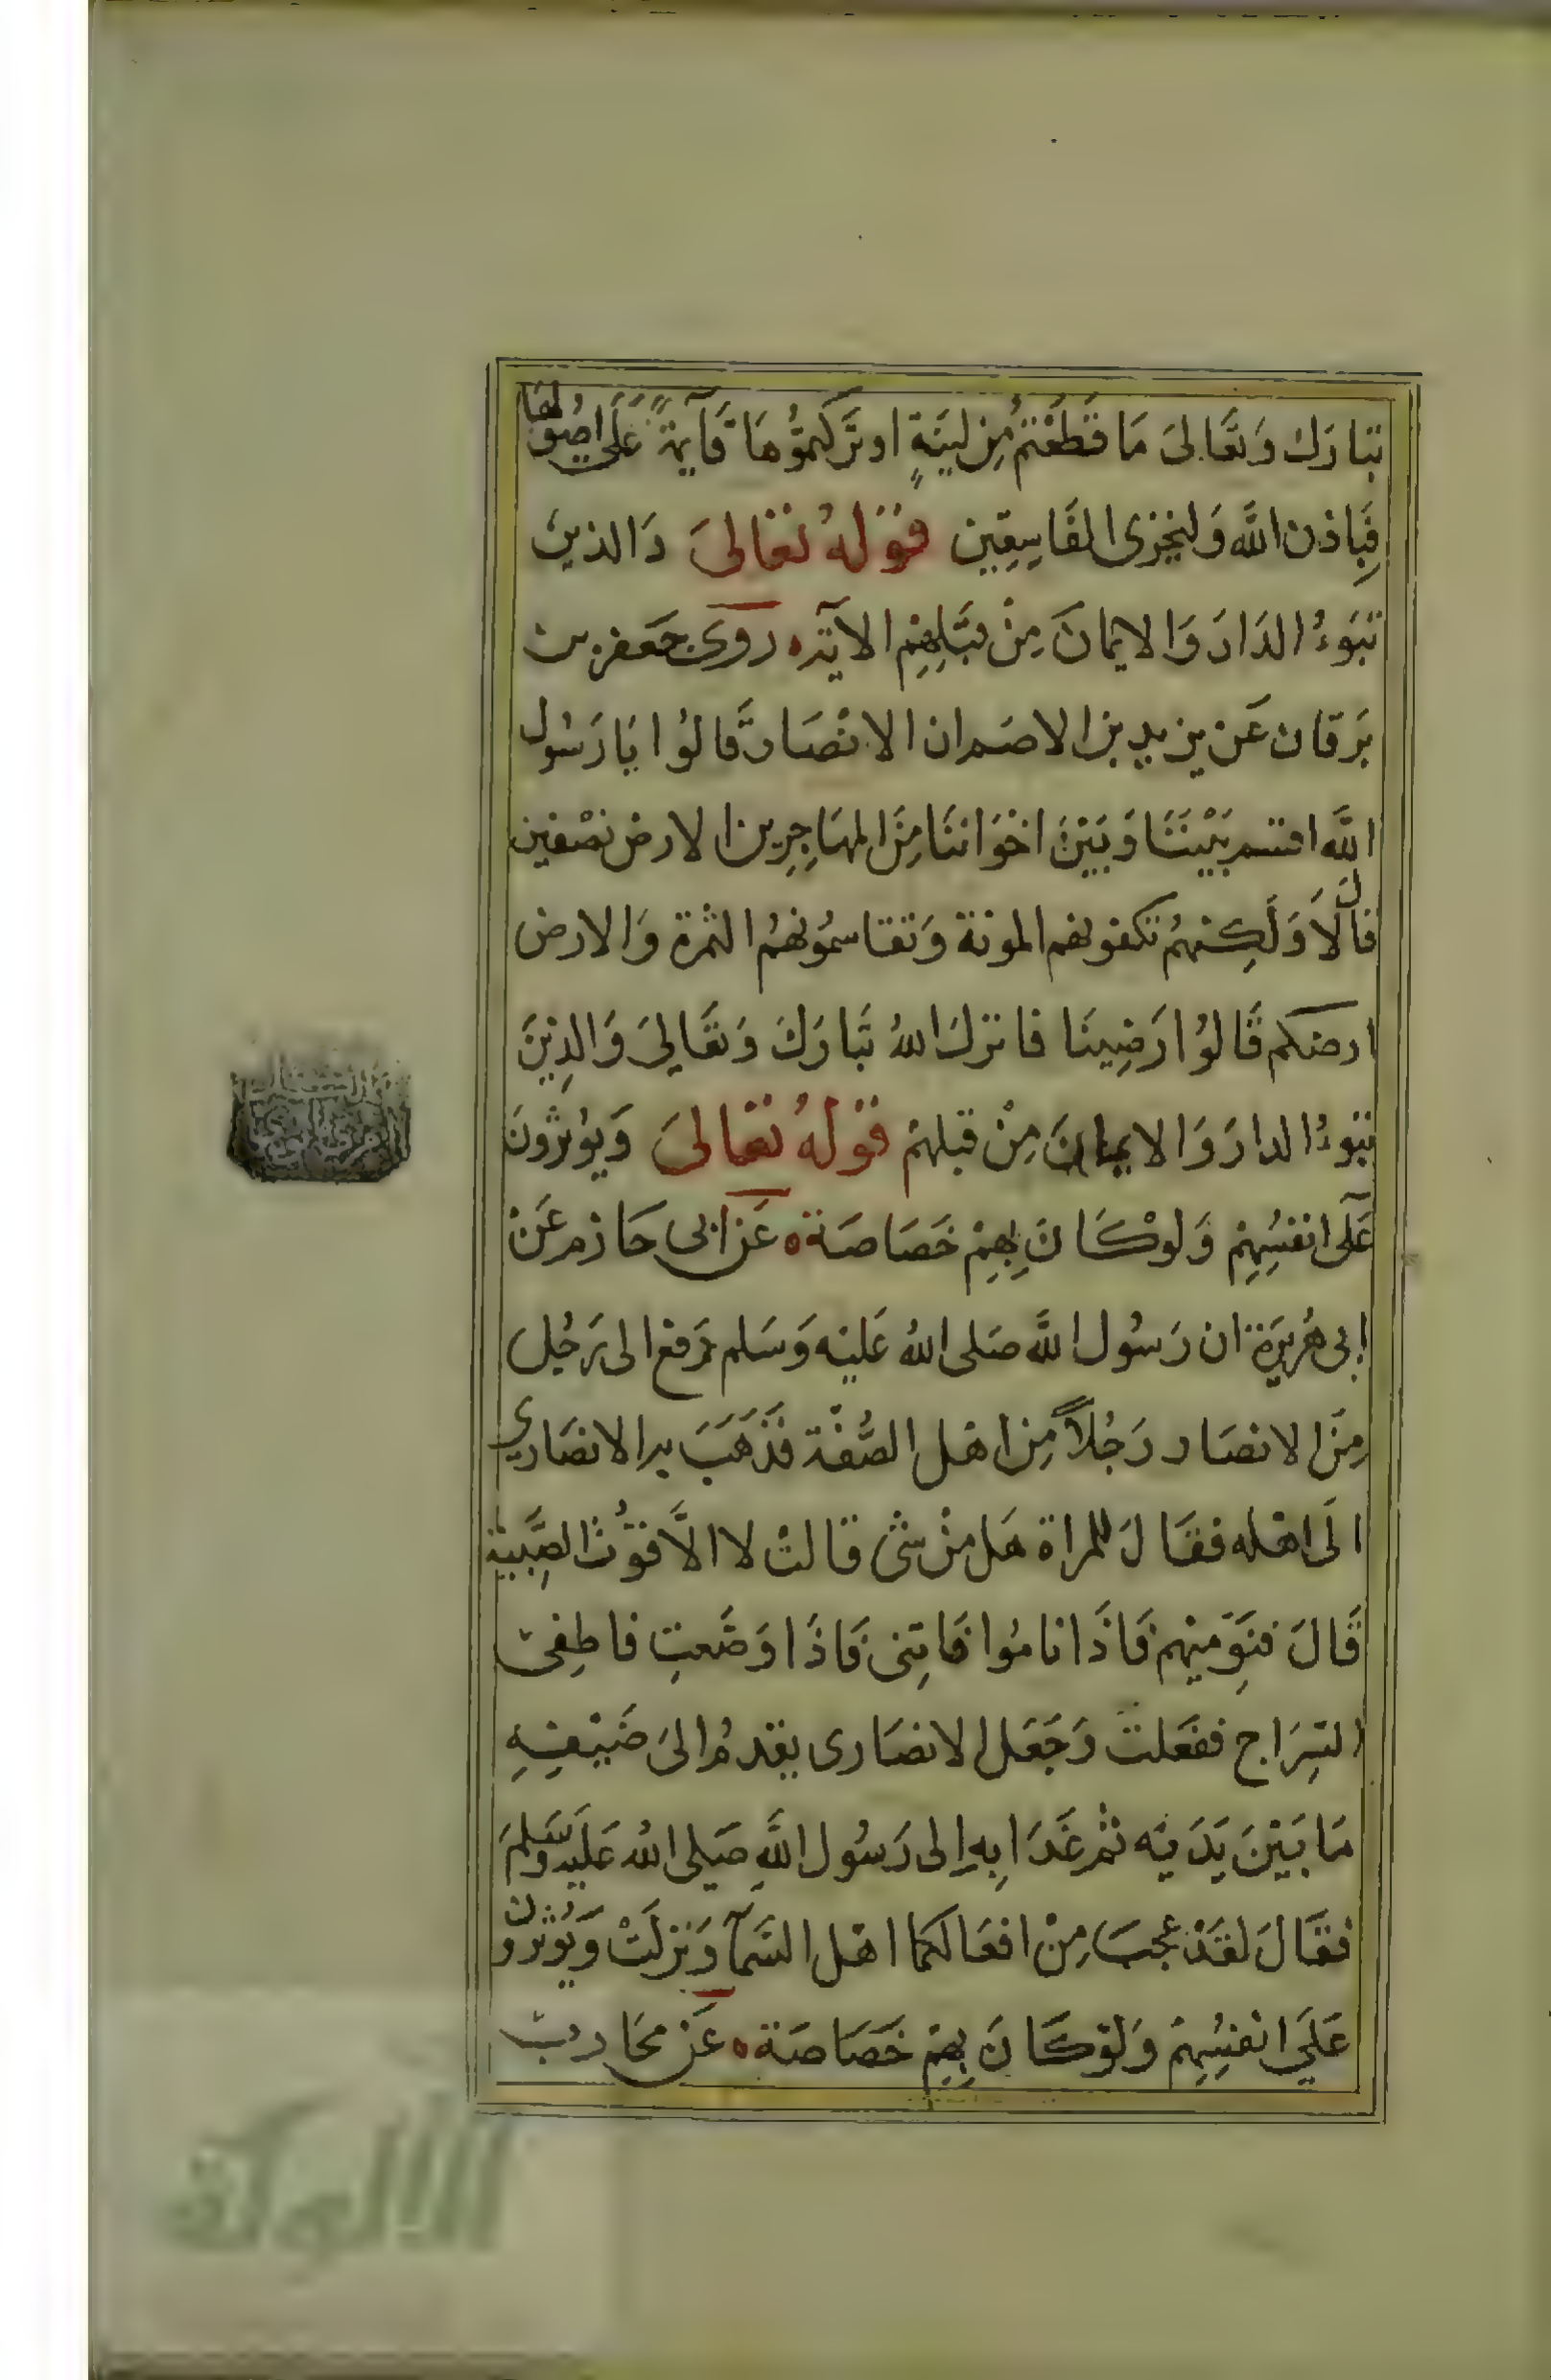 تبارك وتعالى ما قطعتم من لينة او تركتموها قآيمة على اصولها
فباذن الله وليخزى الفاسقين قوله تعالى والذين
تبوءُ الدار والايمان من قبلهم الآية روى جعفر بن
برقان عن يزيد بن الاصم ان الانصار قالوا يا رسول
الله اقسم بيننا وبين اخواننا من المهاجرين الارض نصفين
قال لا ولكنهم تكفونهم المونة وتقاسمونهم الثمرة والارض
ارضكم قالوا رضينا فانزل الله تبارك وتعالى والذين
تبوءُ الدار والايمان من قبلهم قوله تعالى ويوثرون
على انفسهم ولو كان بهم خصاصة عن ابى حازم عن
ابى هريرة ان رسول الله صلى الله عليه وسلم دفع الى رجل
من الانصار رجلاً من اهل الصُّفّة فذهب به الانصاري
الى اهله فقال للمراة هل من شئ قالت لا الّا قوت الصبية
قال فنوّميهم فاذا ناموا فاتنى فاذا وضعت فاطفئ
السراج ففعلت وجعل الانصارى يقدم الى ضيفه
ما بين يديه ثم غدا به الى رسول الله صلى الله عليه وسلم
فقال لقد عجب من افعالكما اهل السمآ ونزلت ويوثرون
على انفسهم ولو كان بهم خصاصة عن محارب
الألوكة